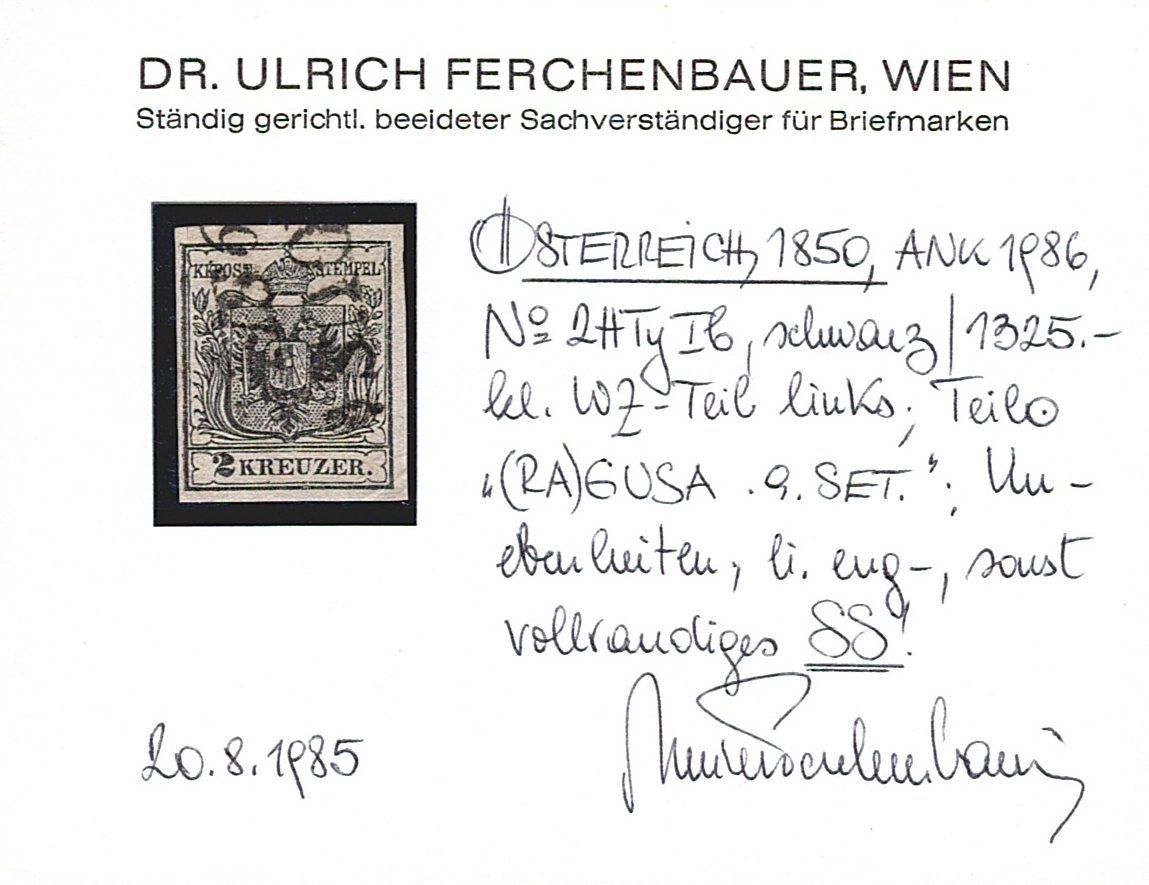 DR. ULRICH FERCHENBAUER, WIEN
Ständig gerichtl. beeideter Sachverständiger für Briefmarken
KKPOST STEMPEL
2 KREUZER.
ÖSTERREICH, 1850, ANK 1986,
No 2H Ty Ib, schwarz / 1325.-
kl. WZ-Teil links; Teil⊙
"(RA)GUSA . 9. SET."; Un-
ebenheiten, li. eng-, sonst
vollrandiges SS!
20.8.1985